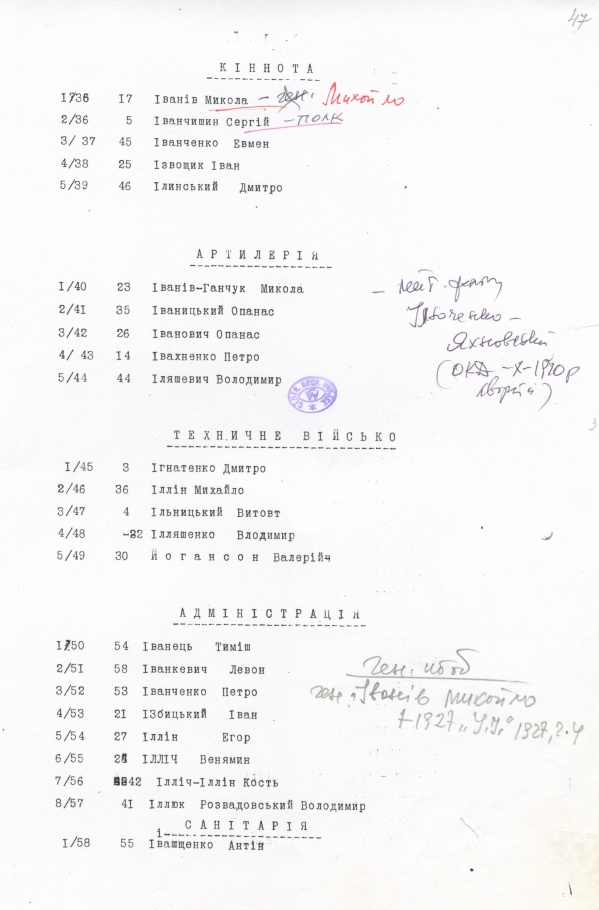 47
КІННОТА
1/36 17 Іванів Микола – ген. Михойло
2/36 5 Іванчишин Сергій – полк
3/ 37 45 Іванченко Евмен
4/38 25 Ізвощик Іван
5/39 46 Ілинський Дмитро
АРТИЛЕРІЯ
1/40 23 Іванів-Ганчук Микола
2/41 35 Іваницький Опанас
3/42 26 Іванович Опанас
4/ 43 14 Івахненко Петро
5/44 44 Іляшевич Володимир
Яхновський
ТЕХНИЧНЕ ВІЙСЬКО
1/45 3 Ігнатенко Дмитро
2/46 36 Іллін Михайло
3/47 4 Ільницький Витовт
4/48 -22 Ілляшенко Влодимир
5/49 30 Йогансон Валерійч
АДМІНІСТРАЦІЯ
1/50 54 Іванець Тиміш
2/51 58 Іванкевич Левон
3/52 53 Іванченко Петро
4/53 21 ІЗбицький Іван
5/54 27 Іллін Егор
6/55 ІЛЛІЧ Венямин
7/56 42 Ілліч-Іллін Кость
8/57 41 Іллюк Розвадовський Володимир
ген. штаб
ген. Іванів Михойло
†1927 "У.І." 1927, 2-4
САНІТАРІЯ
1/58 55 Іващщенко Антін